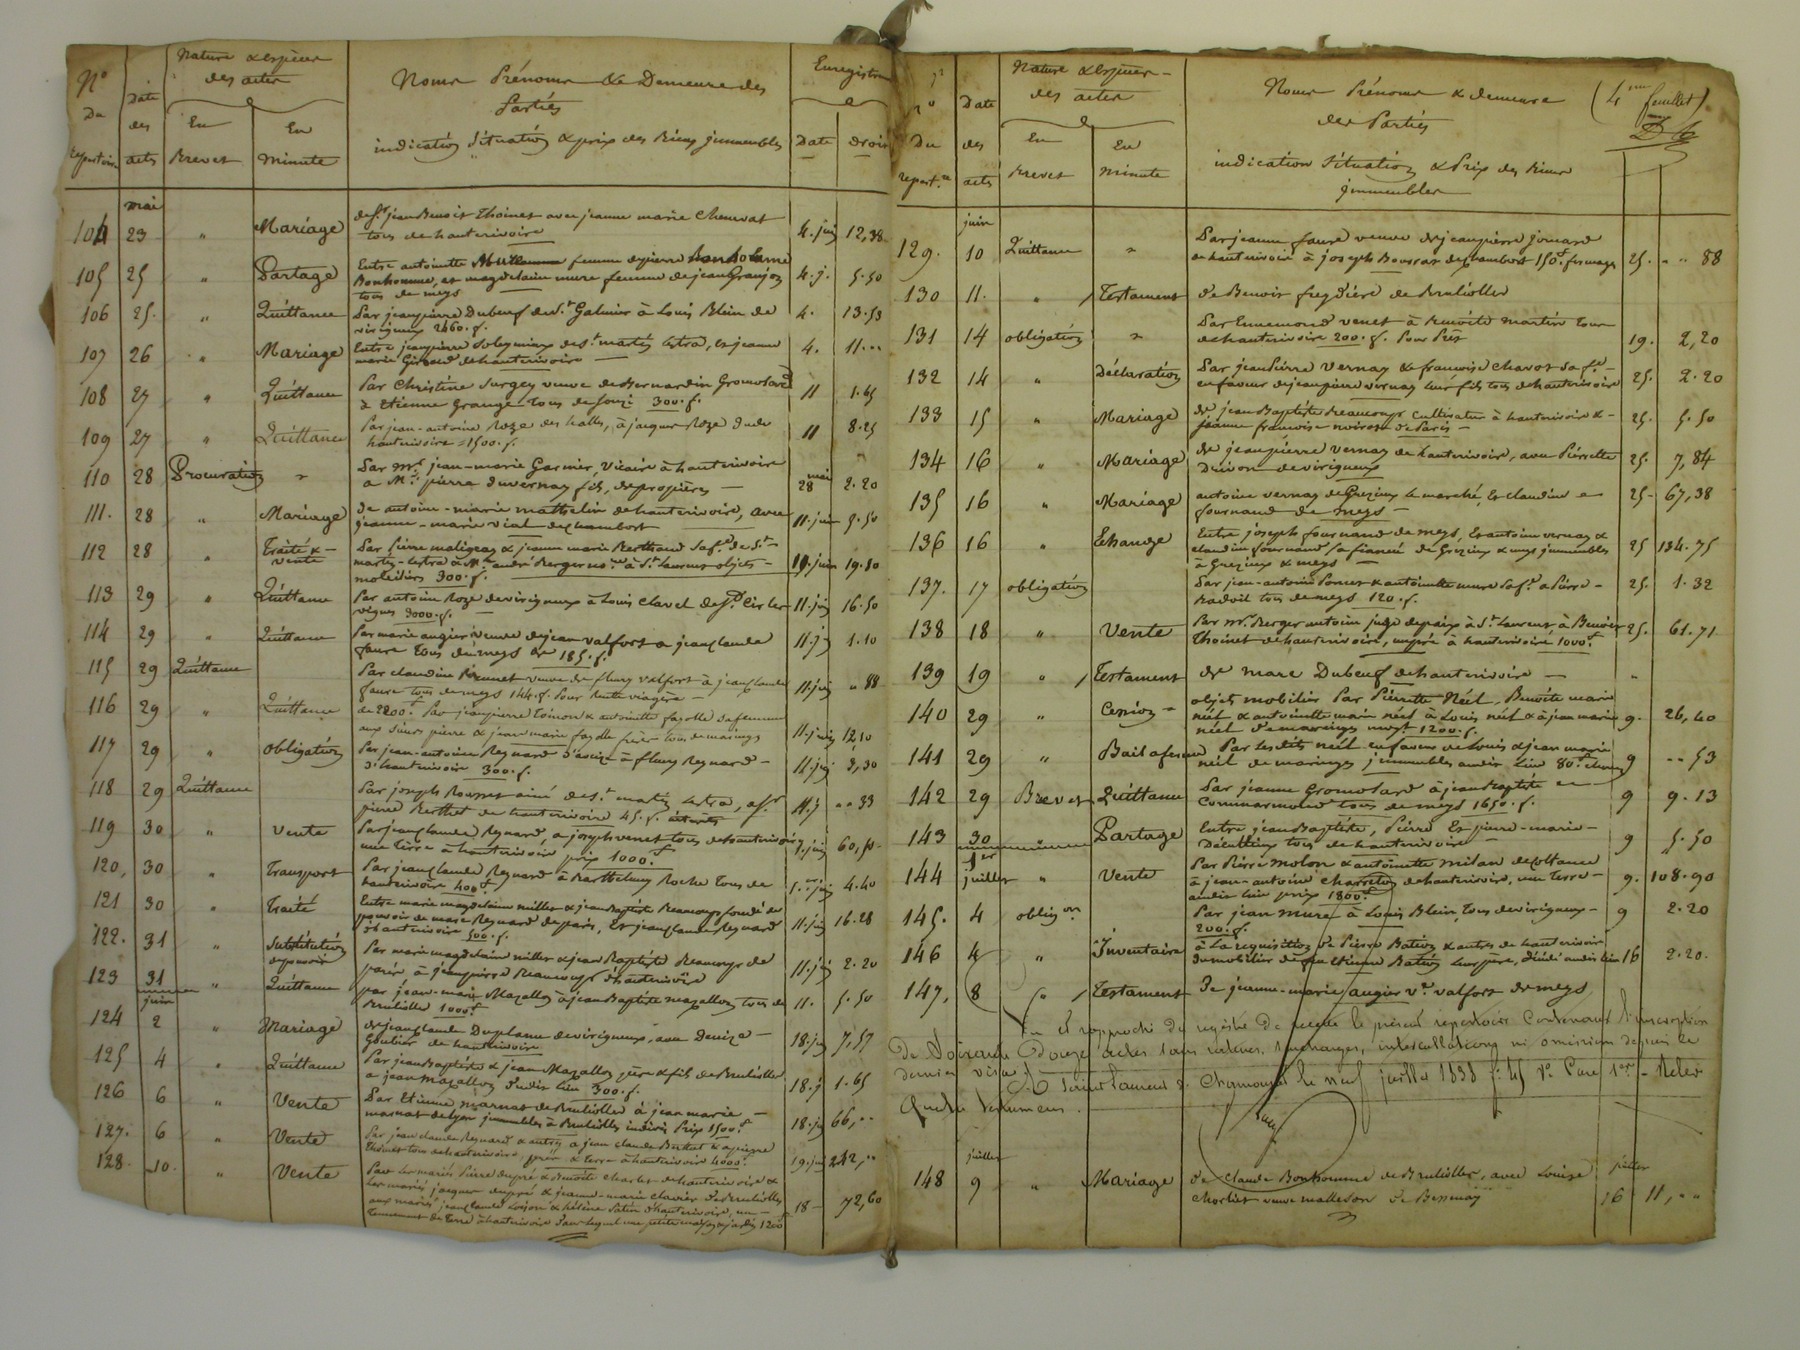 N° Du Repertoire
Date des acts
Nature & espèces des actes
En Brevet
En Minute
Noms Prénoms & Demeure des Parties
indication Situation & prix des Biens jmmeubles
Enregistrem
Date
Droit
mai
104 23 " Mariage de Sr jean Benoit Thoinet avec jeanne marie Chauvat
tous de hauterivoire 4. juin 12,38
105 25 " Partage Entre antoinette femme de pierre
Bonhomme, et magdelaine mure femme de jean Granjon
tous de meys 4. j. 5.50
106 25. " Quittance Par jean pierre Dubeuf de St Galmier à Louis Blein de
virigneux 2460. f. 4. 13.53
107 26 " Mariage Entre jean pierre de St martin Lestra, et jeanne
marie Giraud de hauterivoire 4. 11...
108 27 " Quittance Par Christine Sergey veuve de Bernardin Gromolard
à Etienne Grange tous de 300. f. 11 1.65
109 27 " Quittance Par jean-antoine Roze des halles, à jacques Roze de
hauterivoire 1500. f. 11 8.25
110 28 Procuration " Par Mr jean-marie Garnier, Vicaire à hauterivoire
a Mr pierre duvernay fils, de 28 mai 2.20
111. 28 " Mariage De antoine-marie mathelin de hauterivoire, avec
jeanne-marie vial de chambost 11. juin 5.50
112 28 " Traité & vente Par Pierre & jeanne marie Berthaud sa fe de St
martin-Lestra à Mr andré Berger nore à St Laurent objets
mobiliers 300. f. 11. juin 19.80
113 29 " Quittance Par antoine Roze de virigneux à Louis Clavel de St Cir les
vignes 3000. f. 11. juin 16.50
114 29 " Quittance Par marie augier veuve de jean valfort a jean claude
faure tous de meys de 185. f. 11. j 1.10
115 29 Quittance Par claudine Brunet veuve de fleury valfort à jean claude
faure tous de meys 144. f. Pour Rente viagère 11. juin " 88
116 29 " Quittance de 2200 f Par jean pierre Coinon & antoinette fayolle sa femme
aux Sieurs pierre & jean marie fayolle frères tous de maringes 11. juin 12,10
117 29 " obligation Par jean-antoine Reynard d'aveize à fleury Reynard
d'hauterivoire 300. f. 11. juin 3,30
118 29 Quittance Par joseph Rousset ainé de St martin Lestra, a Sr
pierre Berthet de hauterivoire 45. f. 11. j " " 33
119 30 " vente Par jean claude Reynard, a joseph venet tous de hauterivoire
une terre à hauterivoire prix 1000 f 7. juin 60,50
120, 30 " Transport Par jean claude Reynard à Barthelemy Roche tous de
hauterivoire 400 f juin 4.40
121 30 " Traité Entre marie magdelaine millet & jean Baptiste Beaucoup fondé de
pouvoir de marc Reynard de paris, Et jean claude Reynard
d'hauterivoire 500. f. 11. juin 16.28
122. 31 " Substitution de pouvoir Par marie magdelaine millet & jean Baptiste Beaucoup de
paris à jean pierre Beaucoup d'hauterivoire 11. juin 2.20
123 31 " Quittance par jean-marie Mazallon à jean Baptiste mazallon tous de
Brullioles 1000 f 11. 5.50
juin
124 2 " Mariage de jean claude Duplanne de virigneux, avec Denize
Goutier de hauterivoire 18. ju 7,57
125 4 " Quittance Par jean Baptiste & jean Mazallon père & fils de Brullioles
a jean Mazallon du dit lieu 300. f. 18. j 1.65
126 6 " Vente Par Etienne marnas de Brullioles à jean marie
marnas de Lyon jmmeubles à Brullioles indivis Prix 1500 f 18. ju 66,..
127. 6 " Vente Par jean claude Reynard & autres a jean claude Berthet & a pierre
Thoinet tous de hauterivoire, prés & terre à hauterivoire 4000 f 19. ju 242,..
128. 10. " Vente Par Les mariés Pierre dupré & Benoite Charlet de hauterivoire &
Les mariés jacques dupré & jeanne-marie clavier de Brullioles
aux mariés jean claude Loison & hélène Satin d'hauterivoire, un
Tennement de terre à hauterivoire dans lequel une petite maison & jardin 1200 f 18 72,60
n° Du repertre
Date des acts
Nature & espèces des actes
En Brevet
En Minute
Noms Prénoms & demeure des Parties
indication Situation & Prix des Biens jmmeubles
(4me feuillet)
juin
129. 10 Quittance " Par jeanne faure veuve de jean pierre
de hauterivoire à joseph Bousrat de chambost 150 f fermages 25. " " 88
130 11. " Testament de Benoit freydière de Brullioles
131 14 obligation " Par Ennemond venet à Benoite martin tous
de hauterivoire 200. f. Pour Prêt 19. 2,20
132 14 " Déclaration Par jean Pierre Vernay & francoise Chavot sa fe
en faveur de jean pierre vernay leur fils tous de hauterivoire 25. 2.20
133 15 " Mariage de jean Baptiste Beaucoup cultivateur à hauterivoire &
jeanne francoise de Paris 25. 5.50
134 16 " Mariage de jean pierre vernay de hauterivoire, avec Pierrette
de virigneux 25. 7,84
135 16 " Mariage antoine vernay de Grezieu le marché, Et claudine
fournand de meys 25. 67,38
136 16 " Echange Entre joseph fournand de meys, Et antoine vernay &
claudine fournand sa fiancée de Grezieu & meys jmmeubles
à Grezieux & meys 25 134.75
137. 17 obligation Par jean-antoine Poncet & antoinette mure sa fe a Pierre
tous de meys 120. f. 25. 1.32
138 18 " Vente Par Mr Berger antoine juge de paix à St Laurent à Benoit
Thoinet de hauterivoire, un pré à hauterivoire 1000 f 25. 61.71
139 19 " Testament de marc Dubeuf de hauterivoire "
140 29 " Cession objets mobilier Par Pierrette Néel, Benoite marie
néel & antoinette marie néel à Louis néel & à jean marie
néel de maringes moyt 1200. f. 9. 26,40
141 29 " Bail a ferme Par Les dits néel en faveur de Louis & jean marie
néel de maringes jmmeubles au dit Lieu 80 f 9 .. 53
142 29 Brevet Quittance Par jeanne Gromolard à jean Baptiste
Commarmond tous de meys 1650. f. 9 9.13
143 30 " Partage Entre jean Baptiste, Pierre Et pierre-marie
tous de hauterivoire 9 5.50
1er juillet
144 " Vente Par Pierre Molon & antoinette milan de coltance
à jean-antoine Charreton de hauterivoire, une terre
au dit lieu prix 1800 f 9. 108.90
145. 4 obligon Par jean mure à Louis Blein, tous de virigneux
200. f. 9 2.20
146 4 " Inventaire à La requisition de Pierre Bation & autres de hauterivoire
du mobilier de feu etienne Bation leur père, décédé au dit lieu 16 2.20.
147, 8 " Testament De jeanne-marie augier ve valfort de meys
Vu et rapproché du registre de recette le présent repertoire Contenant l'inscription
De Soixante Douze actes sans ratures, surcharges, intercallations ni omissions depuis le
dernier visa. à Saint Laurent de Chamousset le neuf juillet 1838 f° 45 V° Case 1re Relevé
Quatre testamens.
juillet
148 9 " Mariage De claude Bonhomme de Brullioles, avec Louise
Charlet veuve de Bessenay juillet 16 11,..